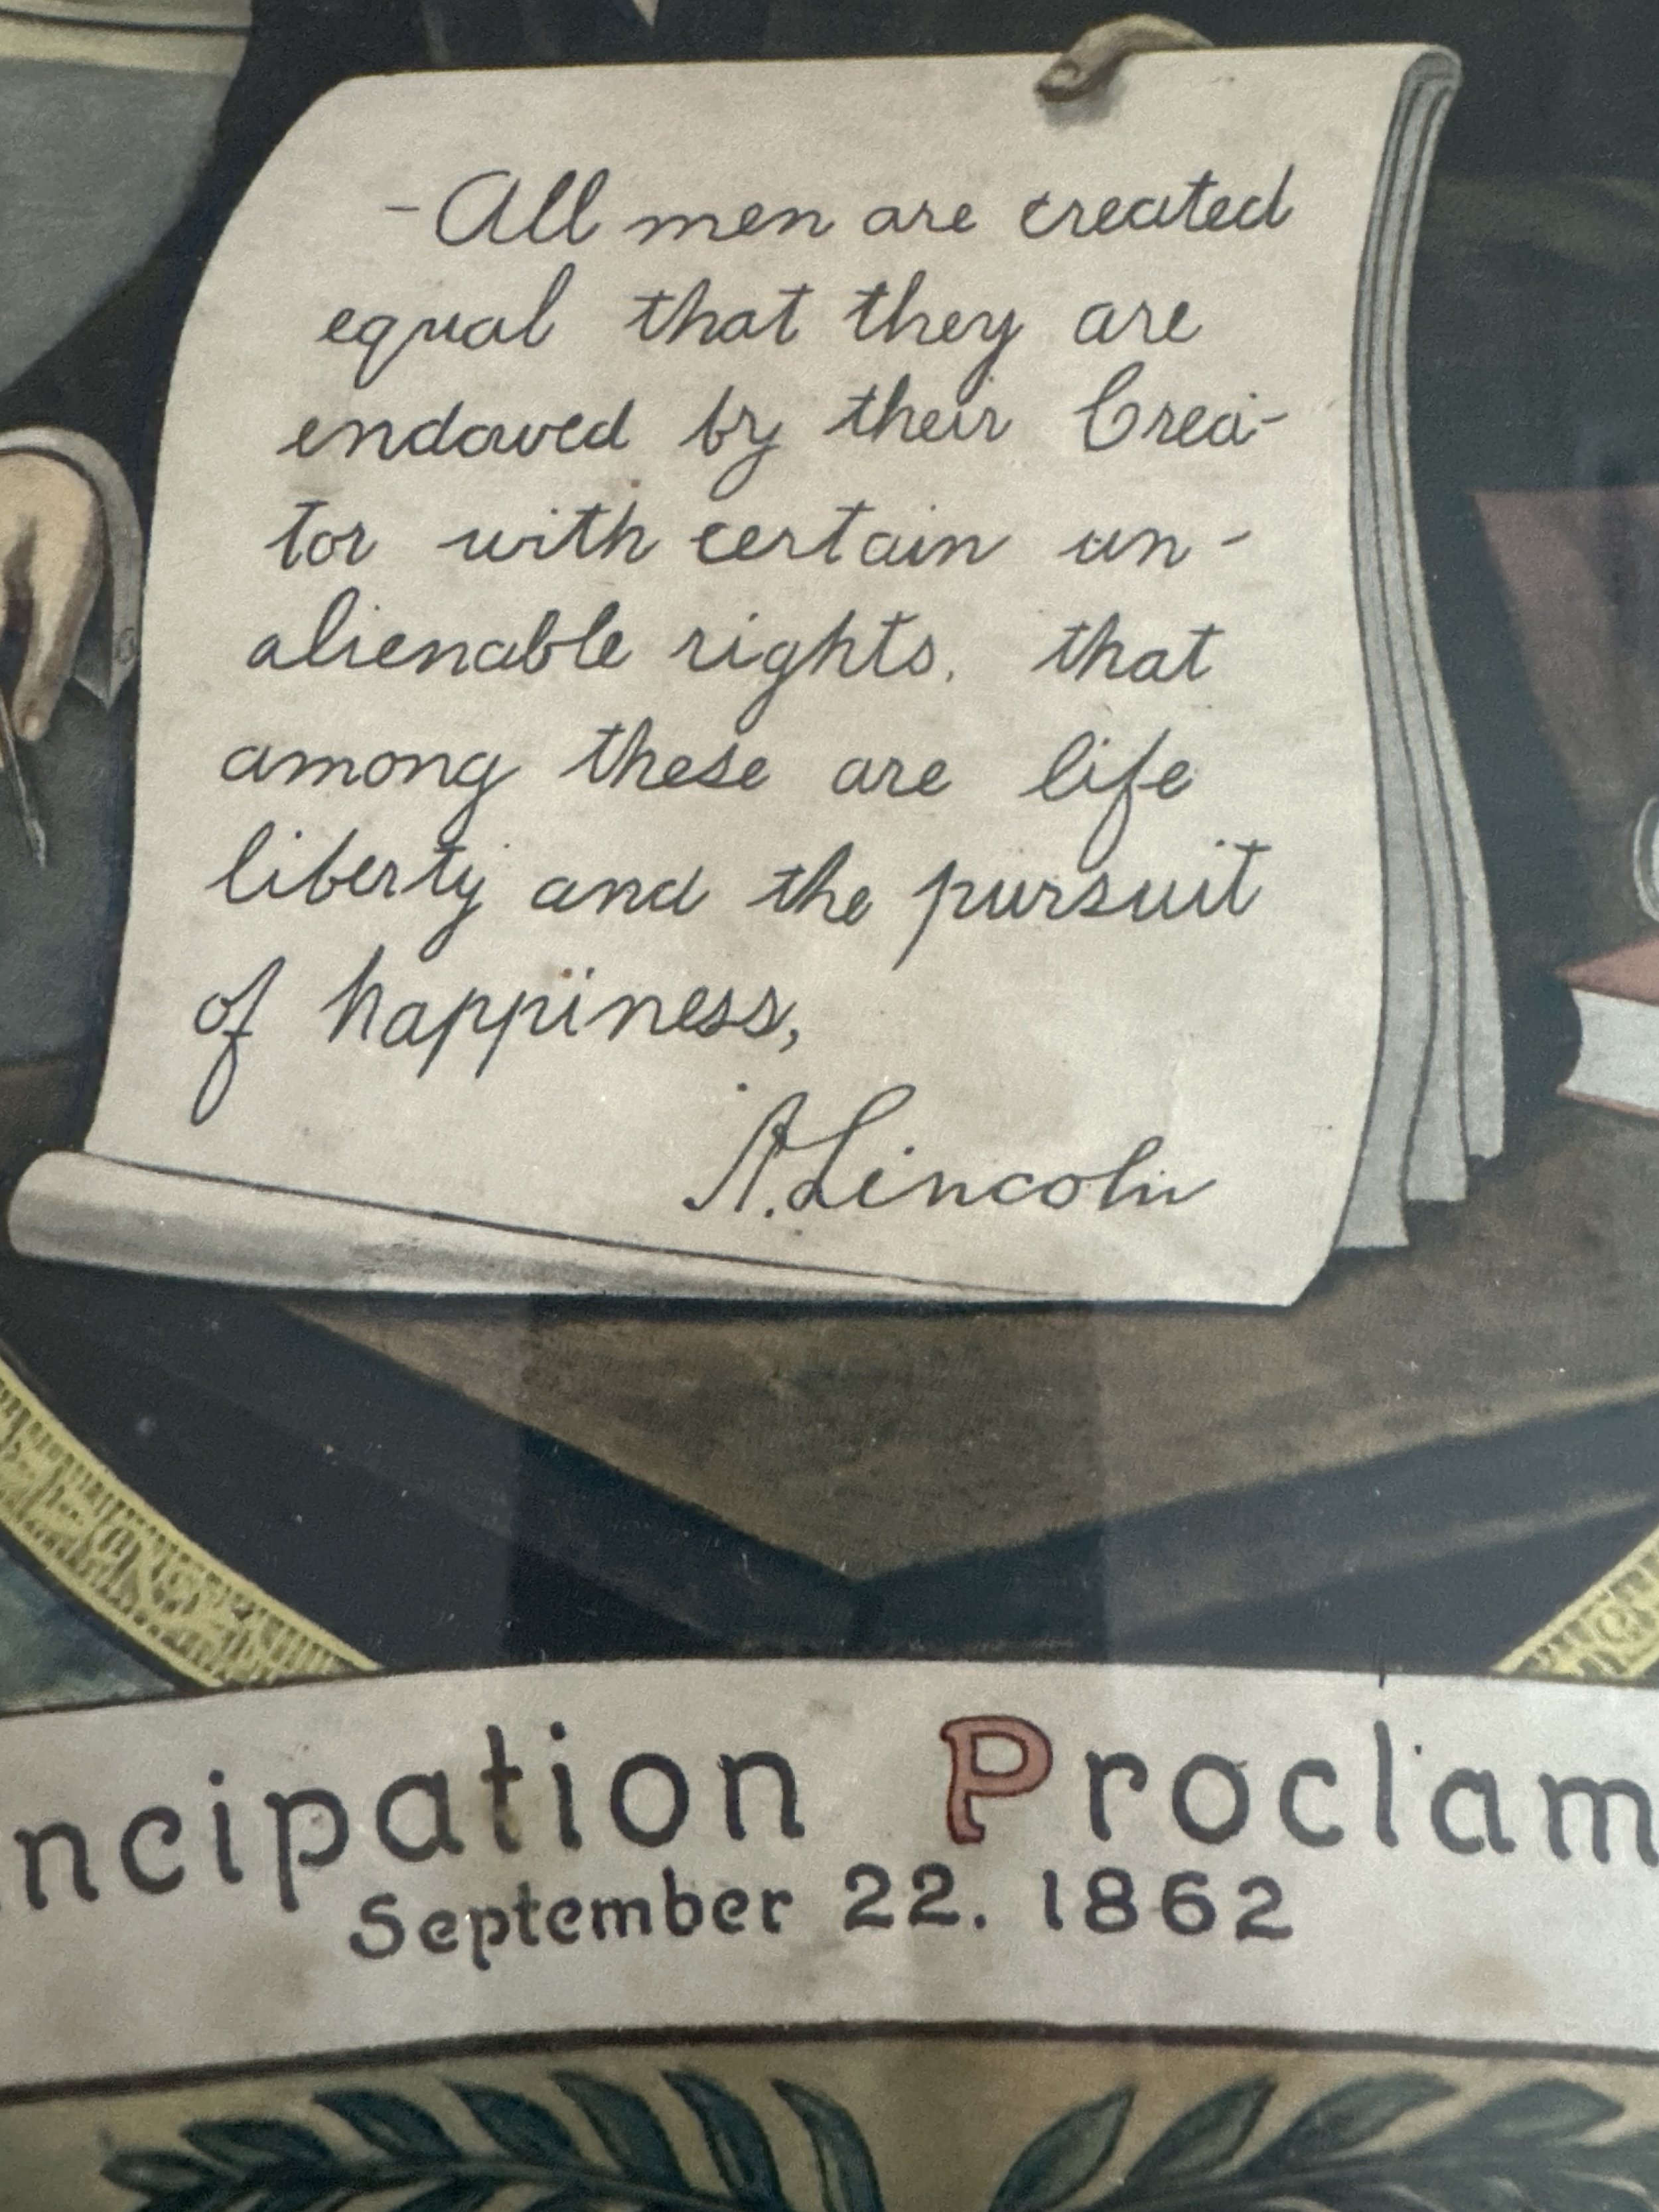 -All men are created
equal that they are
endowed by their Crea-
tor with certain un-
alienable rights, that
among these are life
liberty and the pursuit
of happiness,
A. Lincoln
ncipation Proclam
September 22. 1862